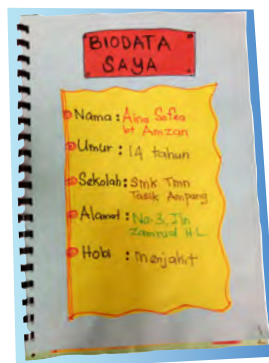 BIODATA
SAYA
Nama : Aina Sofea
bt Amzan
Umur : 14 tahun
Sekolah : Smk Tmn
Tasik Ampang
Alamat : No. 3, Jln
Zamrud H.L
Hobi : Menjahit